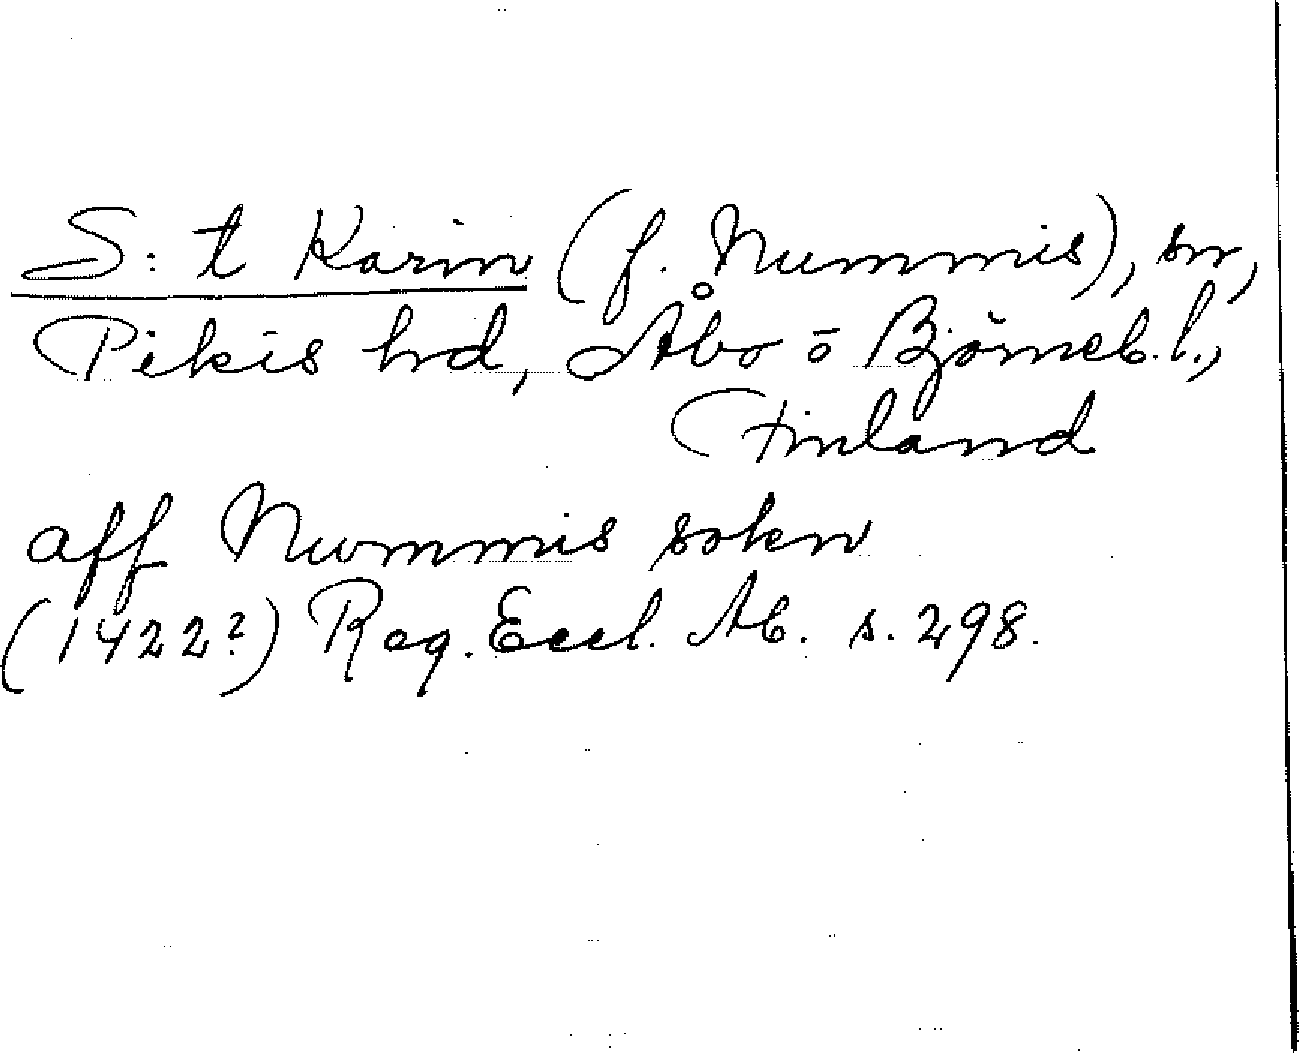 S:t Karin (f. Nummis), sn,
Pikis hd, Åbo o Björneb. l.,
Finland
aff Nummis sokn
(1422?) Reg. Eccl. Ab. s. 298.